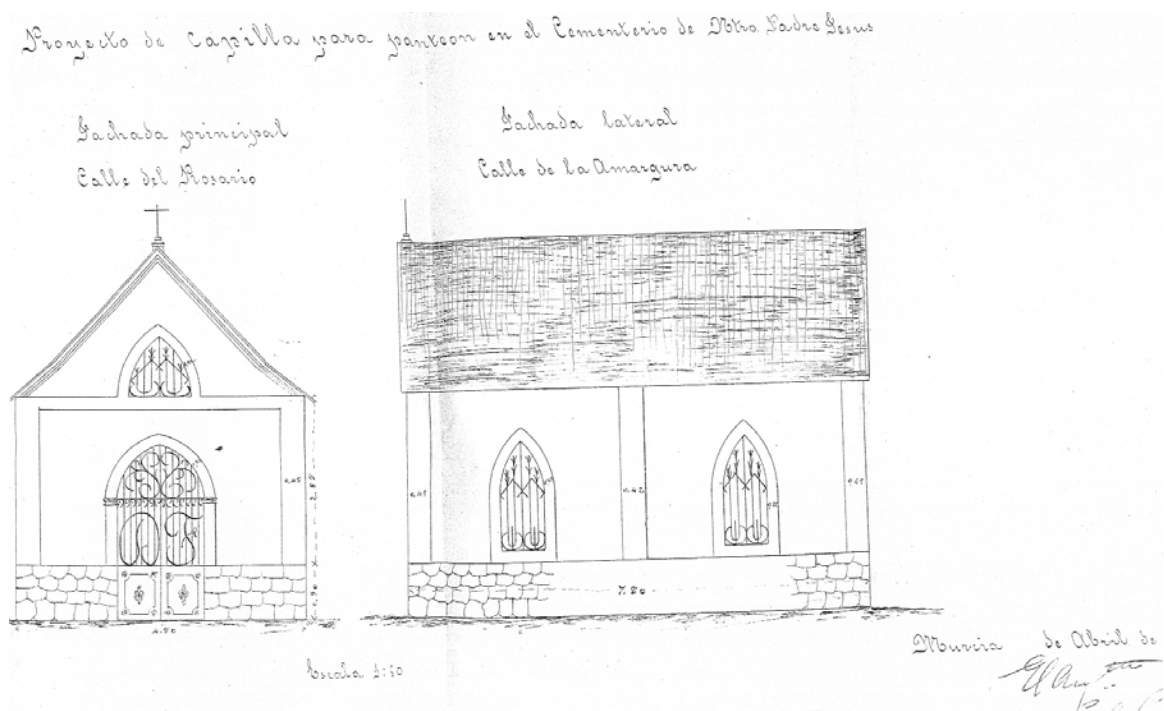 Proyecto de capilla para panteon en el Cementerio de Ntro Padre Jesus
Fachada principal
Calle del Rosario
Fachada lateral
Calle de la Amargura
0.45
2.85
0.90
4.50
0.45
0.42
0.45
7.80
Escala 1:50
Murcia de Abril de
El